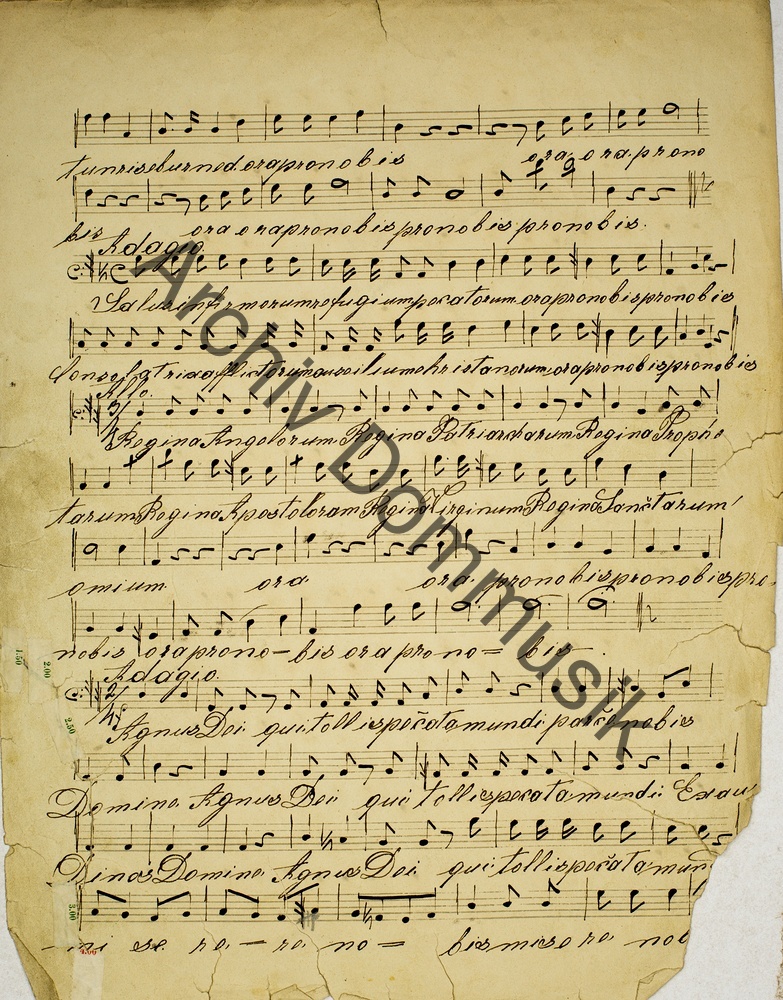 tunriseburned. orapronobis ora. ora. prono
bis ora orapronobis pronobis pronobis.
Adagio.
Salusinfirmorumrefugiumpecatorum. orapronobispronobis
Consolatrixaflictorumauxiliumchristanorum. orapronobispronobis
Allo.
Regina Angelorum Regina Patriarcharum Regina Prophe
tarum Regina Apostoloram Regina Virginum Regina Sanctarum
omium. ora. ora. pronobispronobispro.
nobis oraprono-bis ora prono= bis.
Adagio.
Agnus Dei. quitollispečatamundi parče nobis
Domine. Agnus Dei qui tollispecatamundi: Exau
Dinos Domine. Agnus Dei. qui tollispečatamun
mi se re - re. no = bis misere. nob
Archiv Dommusik
1.50
2.00
2.50
3.00